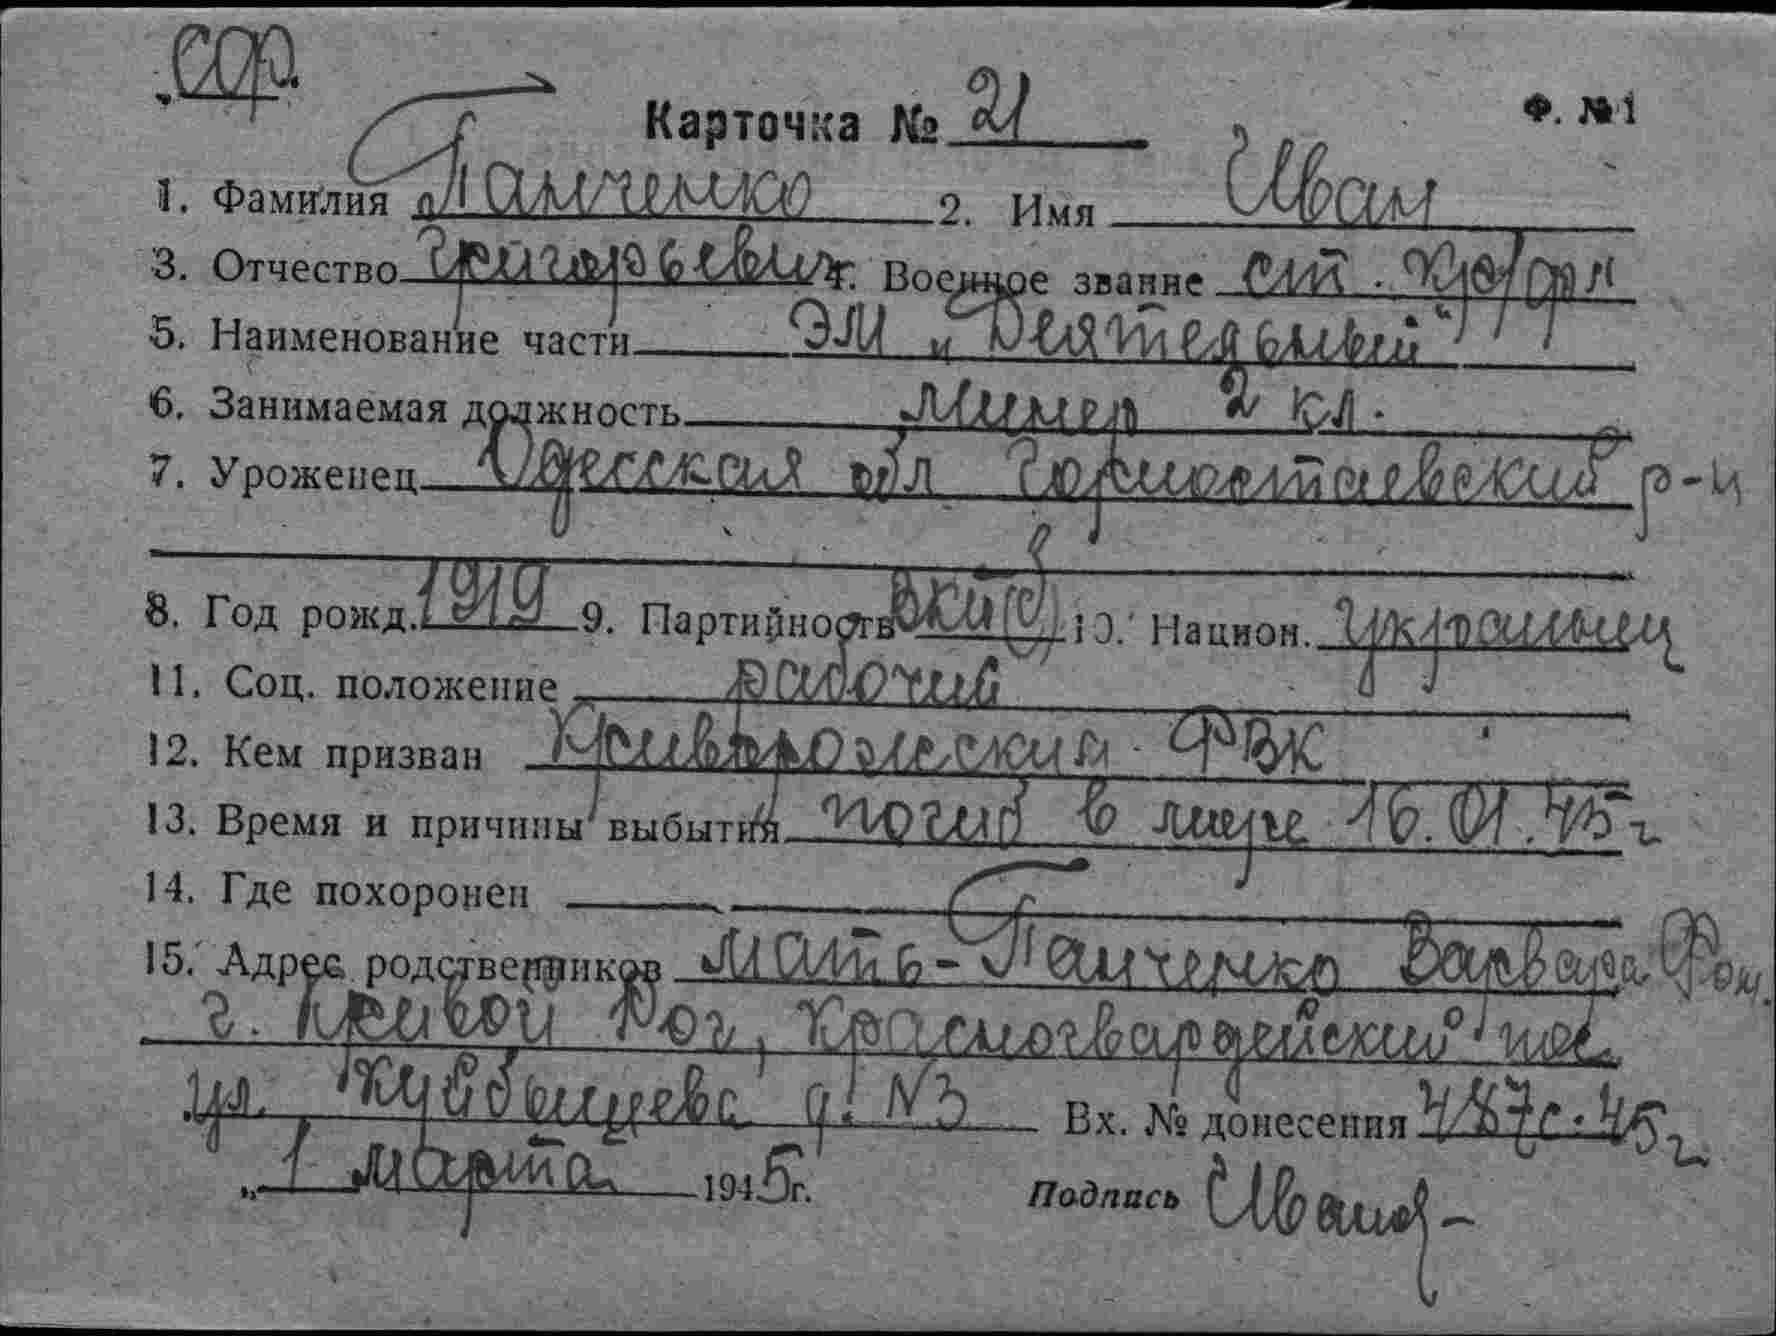 Карточка № 21
Ф. № 1
1. Фамилия Панченко 2. Имя Иван
3. Отчество Григорьевич 4. Военное звание ст. кр/фл
5. Наименование части ЭМ „Деятельный"
6. Занимаемая должность минер 2 кл.
7. Уроженец Одесская обл Горностаевский р-н
8. Год рожд. 1919 9. Партийность ВКП(б) 10. Национ. украинец
11. Соц. положение рабочий
12. Кем призван РВК
13. Время и причины выбытия погиб в море 16.01.45 г
14. Где похоронен
15. Адрес родственников мать - Панченко Варвара Фом.
г. Кривой Рог, Красногвардейский пос.
ул. Куйбышева д. № 3 Вх. № донесения 487с. 45 г
„1 марта 1945 г. Подпись